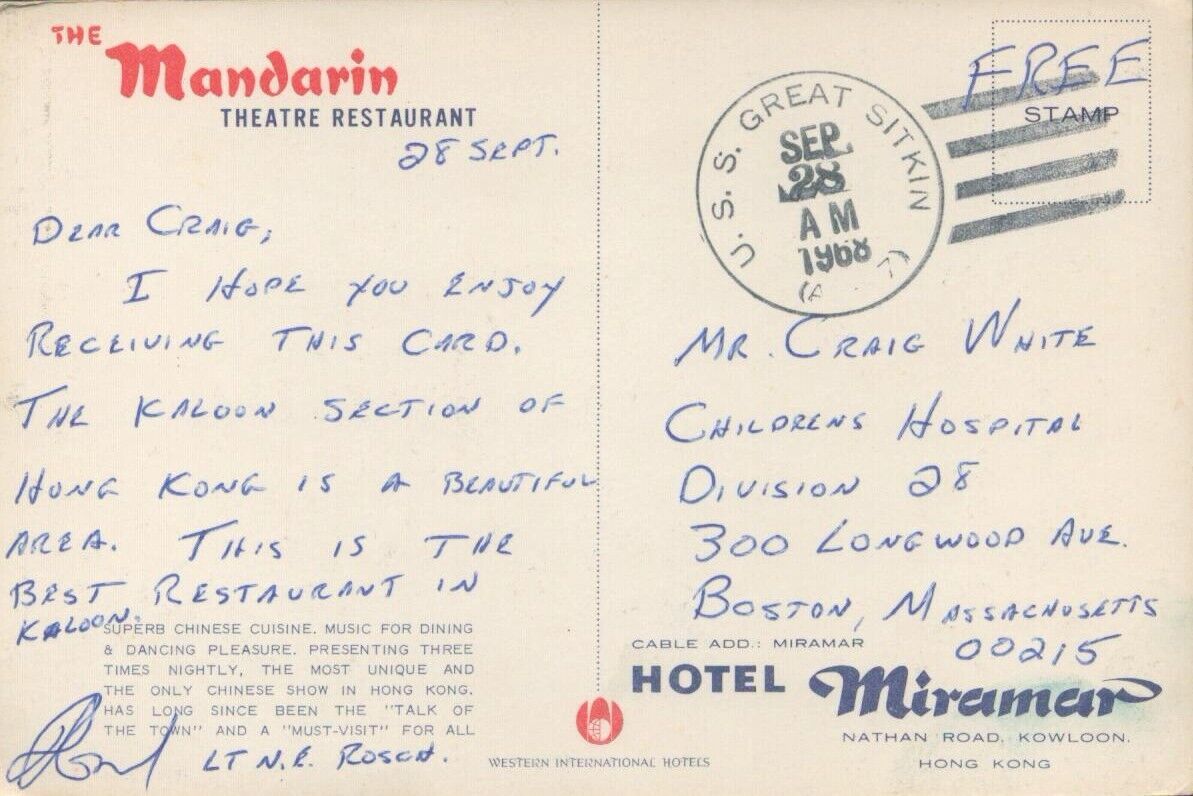 THE
Mandarin
THEATRE RESTAURANT
28 SEPT.
DEAR CRAIG,
I HOPE YOU ENJOY
RECEIVING THIS CARD.
THE KALOON SECTION OF
HONG KONG IS A BEAUTIFUL
AREA. THIS IS THE
BEST RESTAURANT IN
KALOON.
SUPERB CHINESE CUISINE. MUSIC FOR DINING
& DANCING PLEASURE. PRESENTING THREE
TIMES NIGHTLY, THE MOST UNIQUE AND
THE ONLY CHINESE SHOW IN HONG KONG.
HAS LONG SINCE BEEN THE "TALK OF
THE TOWN" AND A "MUST-VISIT" FOR ALL
LT N.E. ROSCH.
WESTERN INTERNATIONAL HOTELS
FREE
STAMP
U. S. S. GREAT SITKIN
SEP.
28
AM
1968
MR. CRAIG WHITE
CHILDRENS HOSPITAL
DIVISION 28
300 LONGWOOD AVE.
BOSTON, MASSACHUSETTS
00215
CABLE ADD.: MIRAMAR
HOTEL Miramar
NATHAN ROAD, KOWLOON.
HONG KONG